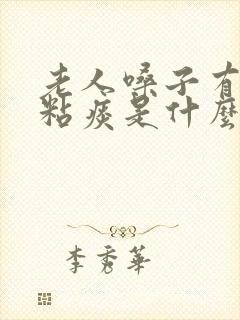 老人嗓子有
粘痰是什麼
李秀華